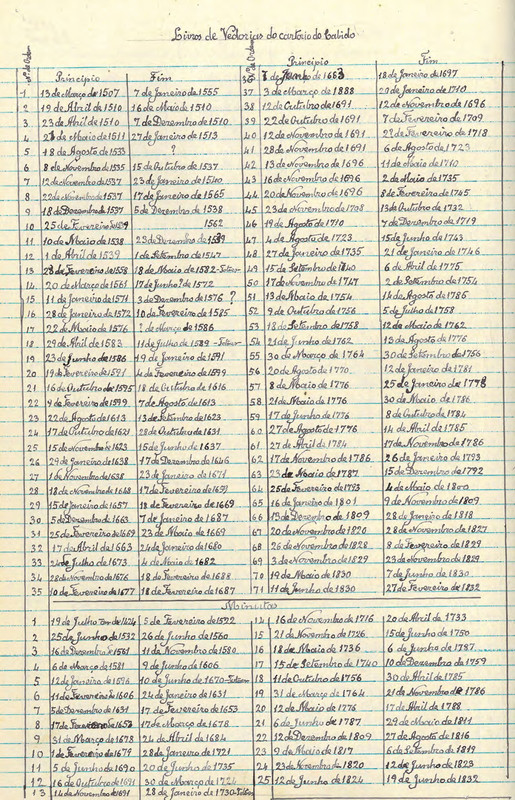 Livros de Vedorias do cartório do Cabido
Nº de Ordem Principio Fim
1 13 de Março de 1507 7 de Janeiro de 1555
2 19 de Abril de 1510 16 de Maio de 1510
3 23 de Abril de 1510 7 de Dezembro de 1510
4 de Maio de 1511 27 de Janeiro de 1513
5 18 de Agosto de 1533 ?
6 8 de Novembro de 1535 15 de Outubro de 1537
7 12 de Novembro de 1537 23 de Janeiro de 1540
8 22 de Novembro de 1537 17 de Janeiro de 1565
9 18 de Dezembro de 1537 5 de Dezembro de 1538
10 25 de Fevereiro de 1562
11 10 de Maio de 1538 23 de Dezembro de
12 1 de Abril de 1539 1 de Setembro de 1547
13 de Fevereiro de 1558 18 de Maio de 1582
14 20 de Março de 1561 17 de Junho? 1572
15 11 de Janeiro de 1571 3 de Dezembro de 1576 ?
16 28 de Janeiro de 1572 10 de Fevereiro de 1585
17 22 de Maio de 1576 2 de Março de 1586
18 29 de Abril de 1583 11 de Julho de 1589
19 23 de Junho de 1586 19 de Janeiro de 1591
20 19 de Fevereiro de 1591 4 de Fevereiro de 1599
21 16 de Outubro de 1595 18 de Outubro de 1616
22 9 de Fevereiro de 1599 7 de Agosto de 1613
23 22 de Agosto de 1613 13 de Setembro de 1623
24 17 de Outubro de 1621 28 de Outubro de 1631
25 15 de Novembro de 1623 15 de Junho de 1637
26 29 de Janeiro de 1638 17 de Dezembro de 1646
27 1 de Novembro de 1638 23 de Janeiro de 1671
28 18 de Novembro de 1648 17 de Fevereiro de
29 15 de Janeiro de 1657 18 de Fevereiro de 1669
30 5 de Dezembro de 1663 7 de Janeiro de 1687
31 25 de Fevereiro de 1669 23 de Maio de 1669
32 17 de Abril de 1663 24 de Janeiro de 1680
33 de Julho de 1673 4 de Maio de 1682
34 28 de Novembro de 1676 18 de Fevereiro de 1688
35 10 de Fevereiro de 1677 18 de Fevereiro de 1687
Nº de Ordem Principio Fim
36 de de 1663 18 de Janeiro de 1697
37 3 de Março de 1888 20 de Janeiro de 1710
38 12 de Outubro de 1691 12 de Novembro de 1696
39 22 de Outubro de 1691 7 de Fevereiro de 1709
40 12 de Novembro de 1691 22 de Fevereiro de 1718
41 28 de Novembro de 1691 6 de Agosto de 1723
42 13 de Novembro de 1696 11 de Maio de 1710
43 16 de Novembro de 1696 2 de Maio de 1735
44 20 de Novembro de 1696 8 de Fevereiro de 1745
45 23 de Novembro de 13 de Outubro de 1732
46 19 de Agosto de 1710 7 de Dezembro de 1719
47 4 de Agosto de 1723 15 de Junho de 1743
48 27 de Janeiro de 1735 21 de Janeiro de 1746
49 15 de Setembro de 6 de Abril de 1775
50 17 de Novembro de 1747 2 de Setembro de 1754
51 13 de Maio de 1754 14 de Agosto de 1785
52 9 de Outubro de 1756 5 de Julho de 1758
53 18 de Setembro de 1758 12 de Maio de 1762
54 21 de Junho de 1762 13 de Agosto de 1776
55 30 de Março de 1764 30 de Setembro de 1756
56 20 de Agosto de 1770 12 de Janeiro de 1781
57 8 de Maio de 1776 25 de Janeiro de 1778
58 21 de Maio de 1776 30 de Maio de 1786
59 17 de Junho de 1776 8 de Outubro de 1784
60 27 de Agosto de 1776 14 de Abril de 1785
61 27 de Abril de 1784 17 de Novembro de 1786
62 17 de Novembro de 1786 26 de Janeiro de 1793
63 23 de Maio de 1787 15 de Dezembro de 1792
64 25 de Fevereiro de 1793 4 de Maio de 1800
65 16 de Janeiro de 1801 9 de Novembro de 1809
66 13 de Dezembro de 1809 28 de Janeiro de 1818
67 20 de Novembro de 1820 28 de Novembro de 1827
68 26 de Novembro de 1828 8 de Fevereiro de 1829
69 3 de Novembro de 1829 23 de Novembro de 1829
70 19 de Maio de 1830 7 de Junho de 1830
71 11 de Junho de 1830 27 de Fevereiro de 1832
Minutas
1 19 de Julho 1424 5 de Fevereiro de 1522
2 25 de Junho de 1532 26 de Junho de 1560
3 16 de Dezembro de 1561 11 de Novembro de 1580
4 6 de Março de 1581 9 de Junho de 1606
5 12 de Janeiro de 1596 10 de Junho de 1670
6 11 de Fevereiro de 1606 24 de Janeiro de 1631
7 5 de Dezembro de 1631 17 de Fevereiro de 1653
8 17 de Fevereiro de 1653 17 de Março de 1678
9 31 de Março de 1678 24 de Abril de 1684
10 1 de Fevereiro de 1679 28 de Janeiro de 1721
11 5 de Junho de 1690 20 de Junho de 1735
12 16 de Outubro de 1691 30 de Março de 1724
13 14 de Novembro de 1691 28 de Janeiro de 1730
14 16 de Novembro de 1716 20 de Abril de 1733
15 21 de Novembro de 1726 15 de Junho de 1750
16 18 de Maio de 1736 6 de Junho de 1787
17 15 de Setembro de 1740 10 de Dezembro de 1759
18 11 de Outubro de 1756 30 de Abril de 1785
19 31 de Março de 1764 21 de Novembro de 1786
20 12 de Maio de 1776 17 de Abril de 1788
21 6 de Junho de 1787 29 de Maio de 1811
22 12 de Dezembro de 1809 27 de Agosto de 1816
23 9 de Maio de 1817 6 de Setembro de 1819
24 23 de Novembro de 1820 12 de Junho de 1823
25 12 de Junho de 1824 19 de Junho de 1832